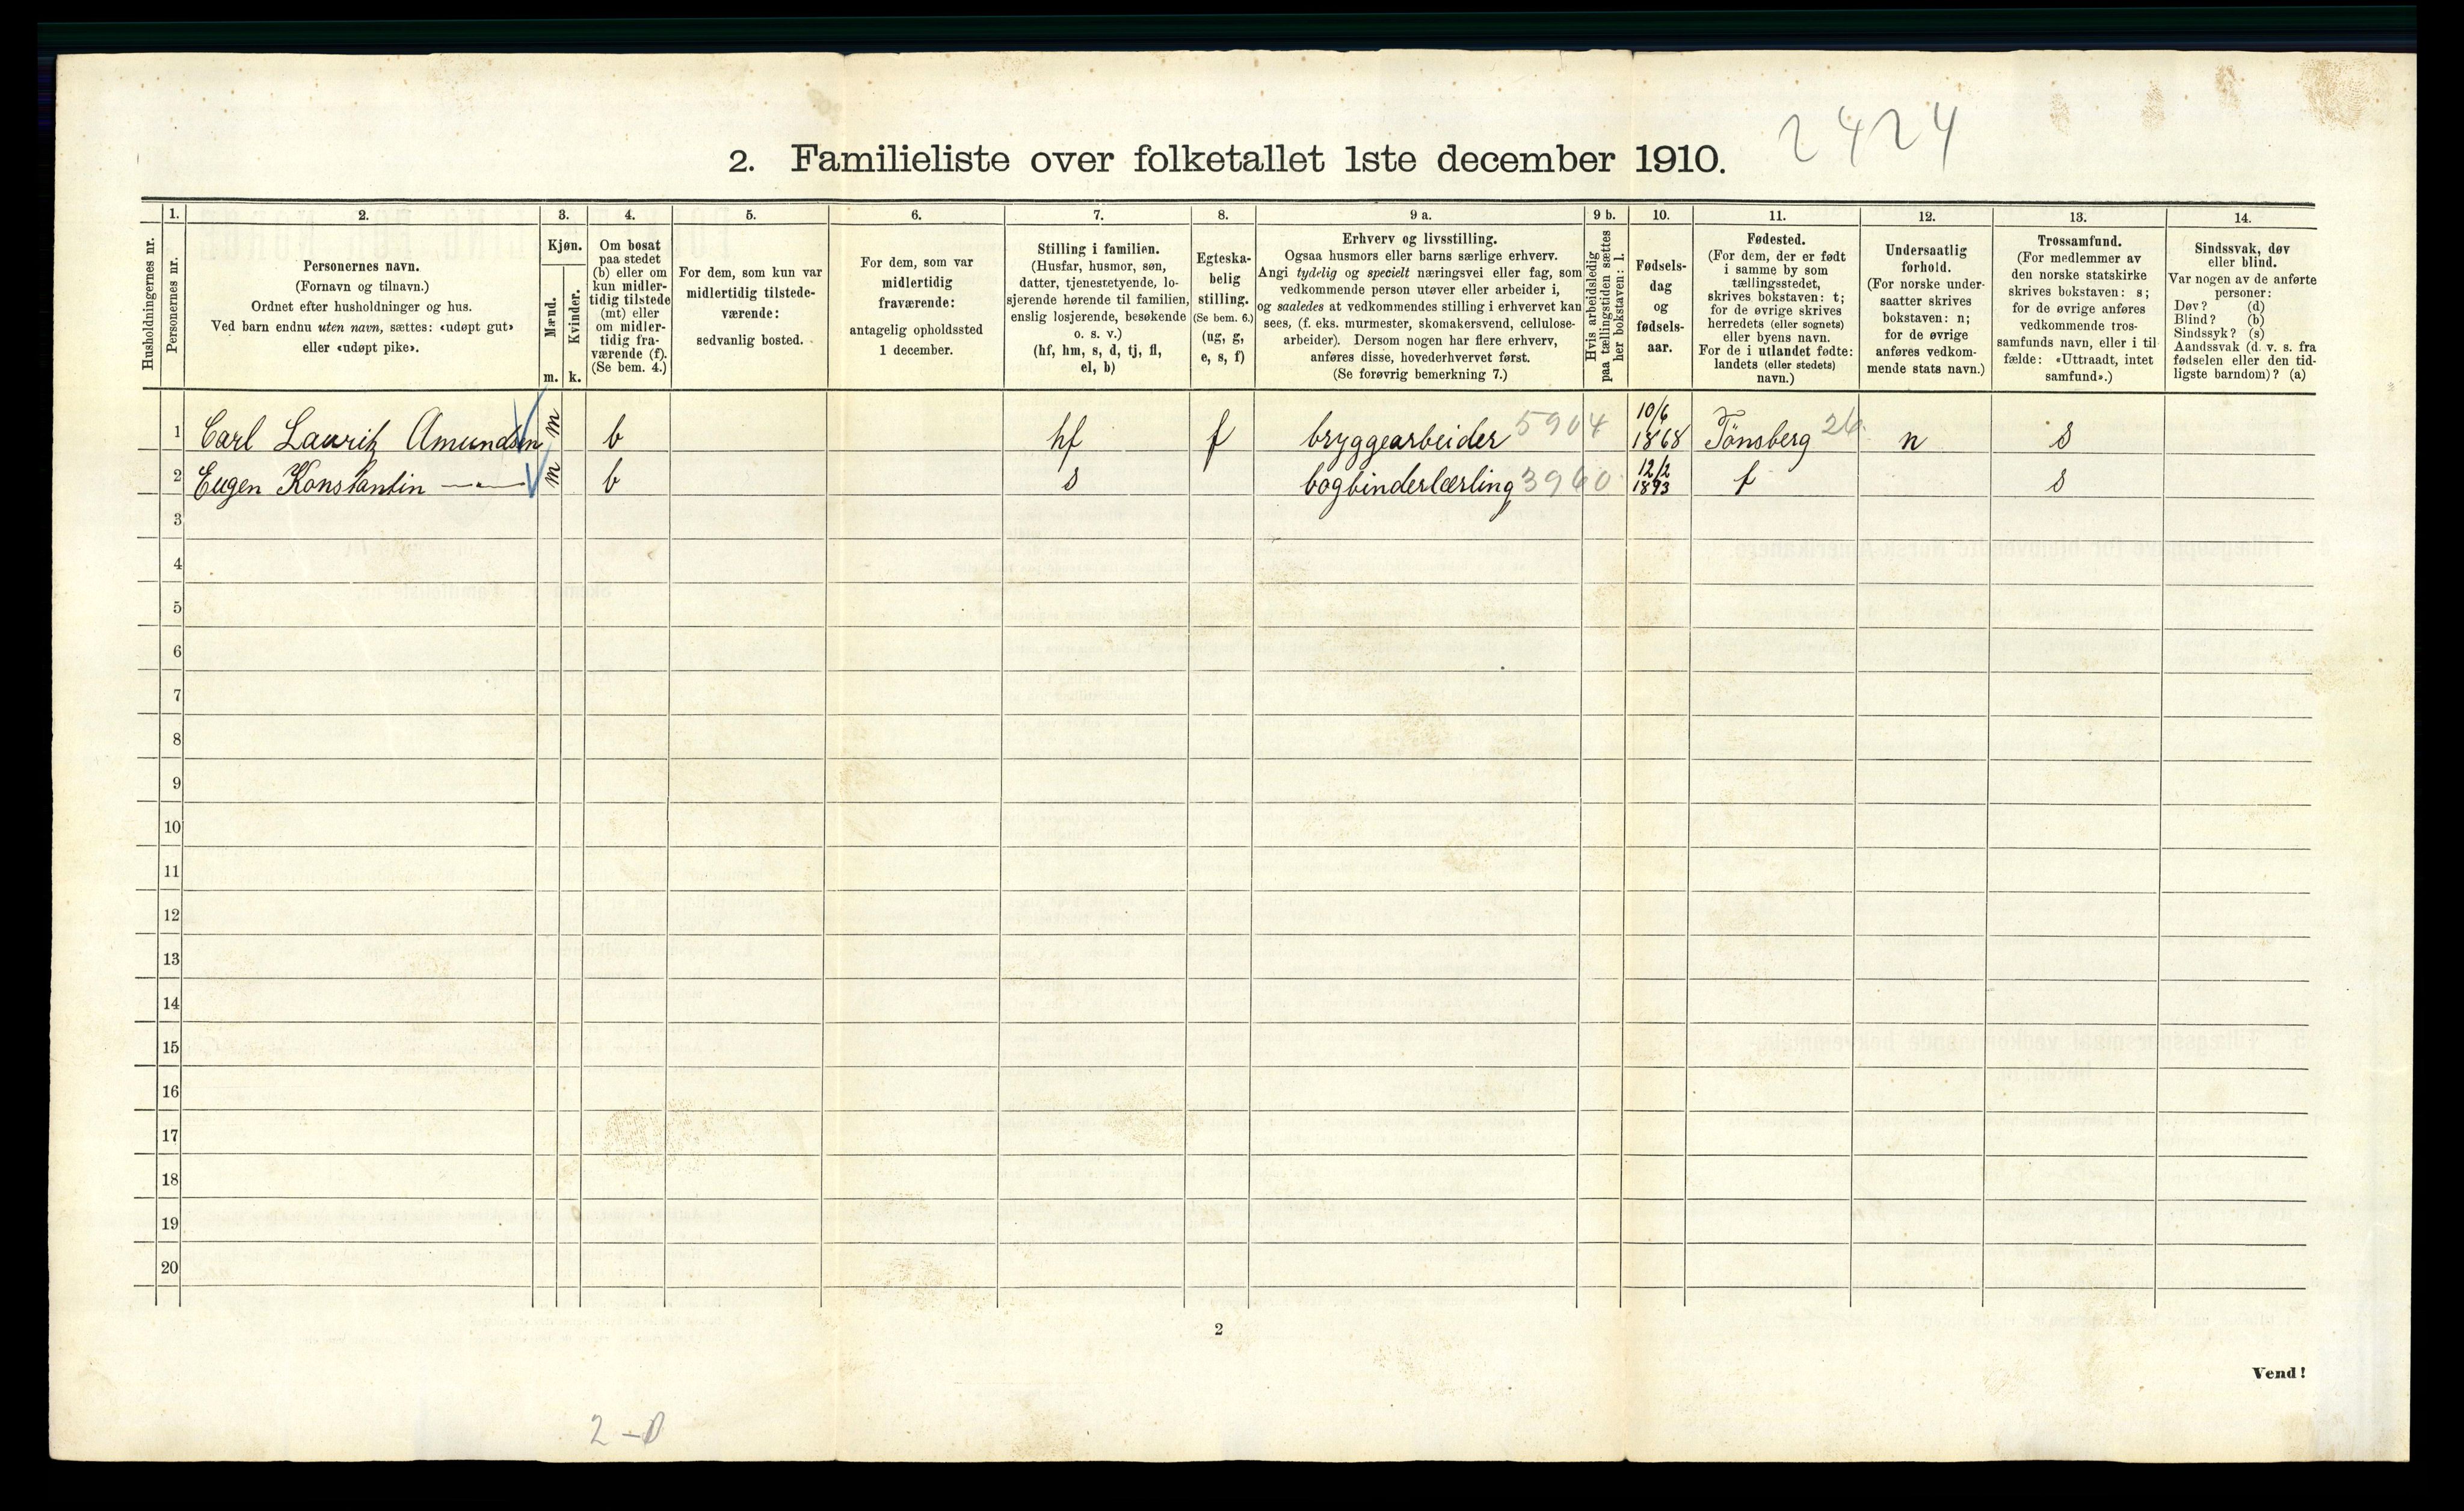 2424
2. Familieliste over folketallet 1ste december 1910.
Husholdningernes nr.
1.
Personernes nr.
2.
Personernes navn.
(Fornavn og tilnavn.)
Ordnet efter husholdninger og hus.
Ved barn endnu uten navn, sættes: «udøpt gut»
eller «udøpt pike».
3.
Kjøn.
Mænd.
Kvinder.
m.
k.
4.
Om bosat
paa stedet
(b) eller om
kun midler-
tidig tilstede
(mt) eller
om midler-
tidig fra-
værende (f).
(Se bem. 4.)
5.
For dem, som kun var
midlertidig tilstede-
værende:
sedvanlig bosted.
6.
For dem, som var
midlertidig
fraværende:
antagelig opholdssted
1 december.
7.
Stilling i familien.
(Husfar, husmor, søn,
datter, tjenestetyende, lo-
sjerende hørende til familien,
enslig losjerende, besøkende
o. s. v.)
(hf, hm, s, d, tj, fl,
el, b)
8.
Egteska-
belig
stilling.
(Se bem. 6.)
(ug, g,
e, s, f)
9 a.
Erhverv og livsstilling.
Ogsaa husmors eller barns særlige erhverv.
Angi tydelig og specielt næringsvei eller fag, som
vedkommende person utøver eller arbeider i,
og saaledes at vedkommendes stilling i erhvervet kan
sees, (f. eks. murmester, skomakersvend, cellulose-
arbeider). Dersom nogen har flere erhverv,
anføres disse, hovederhvervet først.
(Se forøvrig bemerkning 7.)
9 b.
Hvis arbeidsledig
paa tællingstiden sættes
her bokstaven: l.
10.
Fødsels-
dag
og
fødsels-
aar.
11.
Fødested.
(For dem, der er født
i samme by som
tællingsstedet,
skrives bokstaven: t;
for de øvrige skrives
herredets (eller sognets)
eller byens navn.
For de i utlandet fødte:
landets (eller stedets)
navn.)
12.
Undersaatlig
forhold.
(For norske under-
saatter skrives
bokstaven: n;
for de øvrige
anføres vedkom-
mende stats navn.)
13.
Trossamfund.
(For medlemmer av
den norske statskirke
skrives bokstaven: s;
for de øvrige anføres
vedkommende tros-
samfunds navn, eller i til-
fælde: «Uttraadt, intet
samfund».)
14.
Sindssvak, døv
eller blind.
Var nogen av de anførte
personer:
Døv? (d)
Blind? (b)
Sindssyk? (s)
Aandssvak (d. v. s. fra
fødselen eller den tid-
ligste barndom)? (a)
1 Carl Lauritz Amundsen m b hf f bryggearbeider 5904 10/6 1868 Tönsberg 26 n s
2 Eugen Konstantin —"— m b s bogbinderlærling 3960 12/2 1893 t s
3
4
5
6
7
8
9
10
11
12
13
14
15
16
17
18
19
20
2
Vend!
2-0